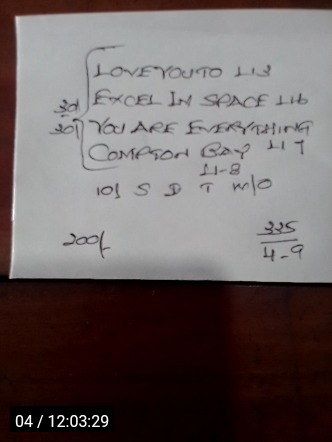 LOVE YOU TO L13
30/ EXCEL IN SPACE L16
30/ YOU ARE EVERYTHING
COMPTON BAY L17
L1-8
10/ S D T W/O
200/-
335
4-9
04 / 12:03:29